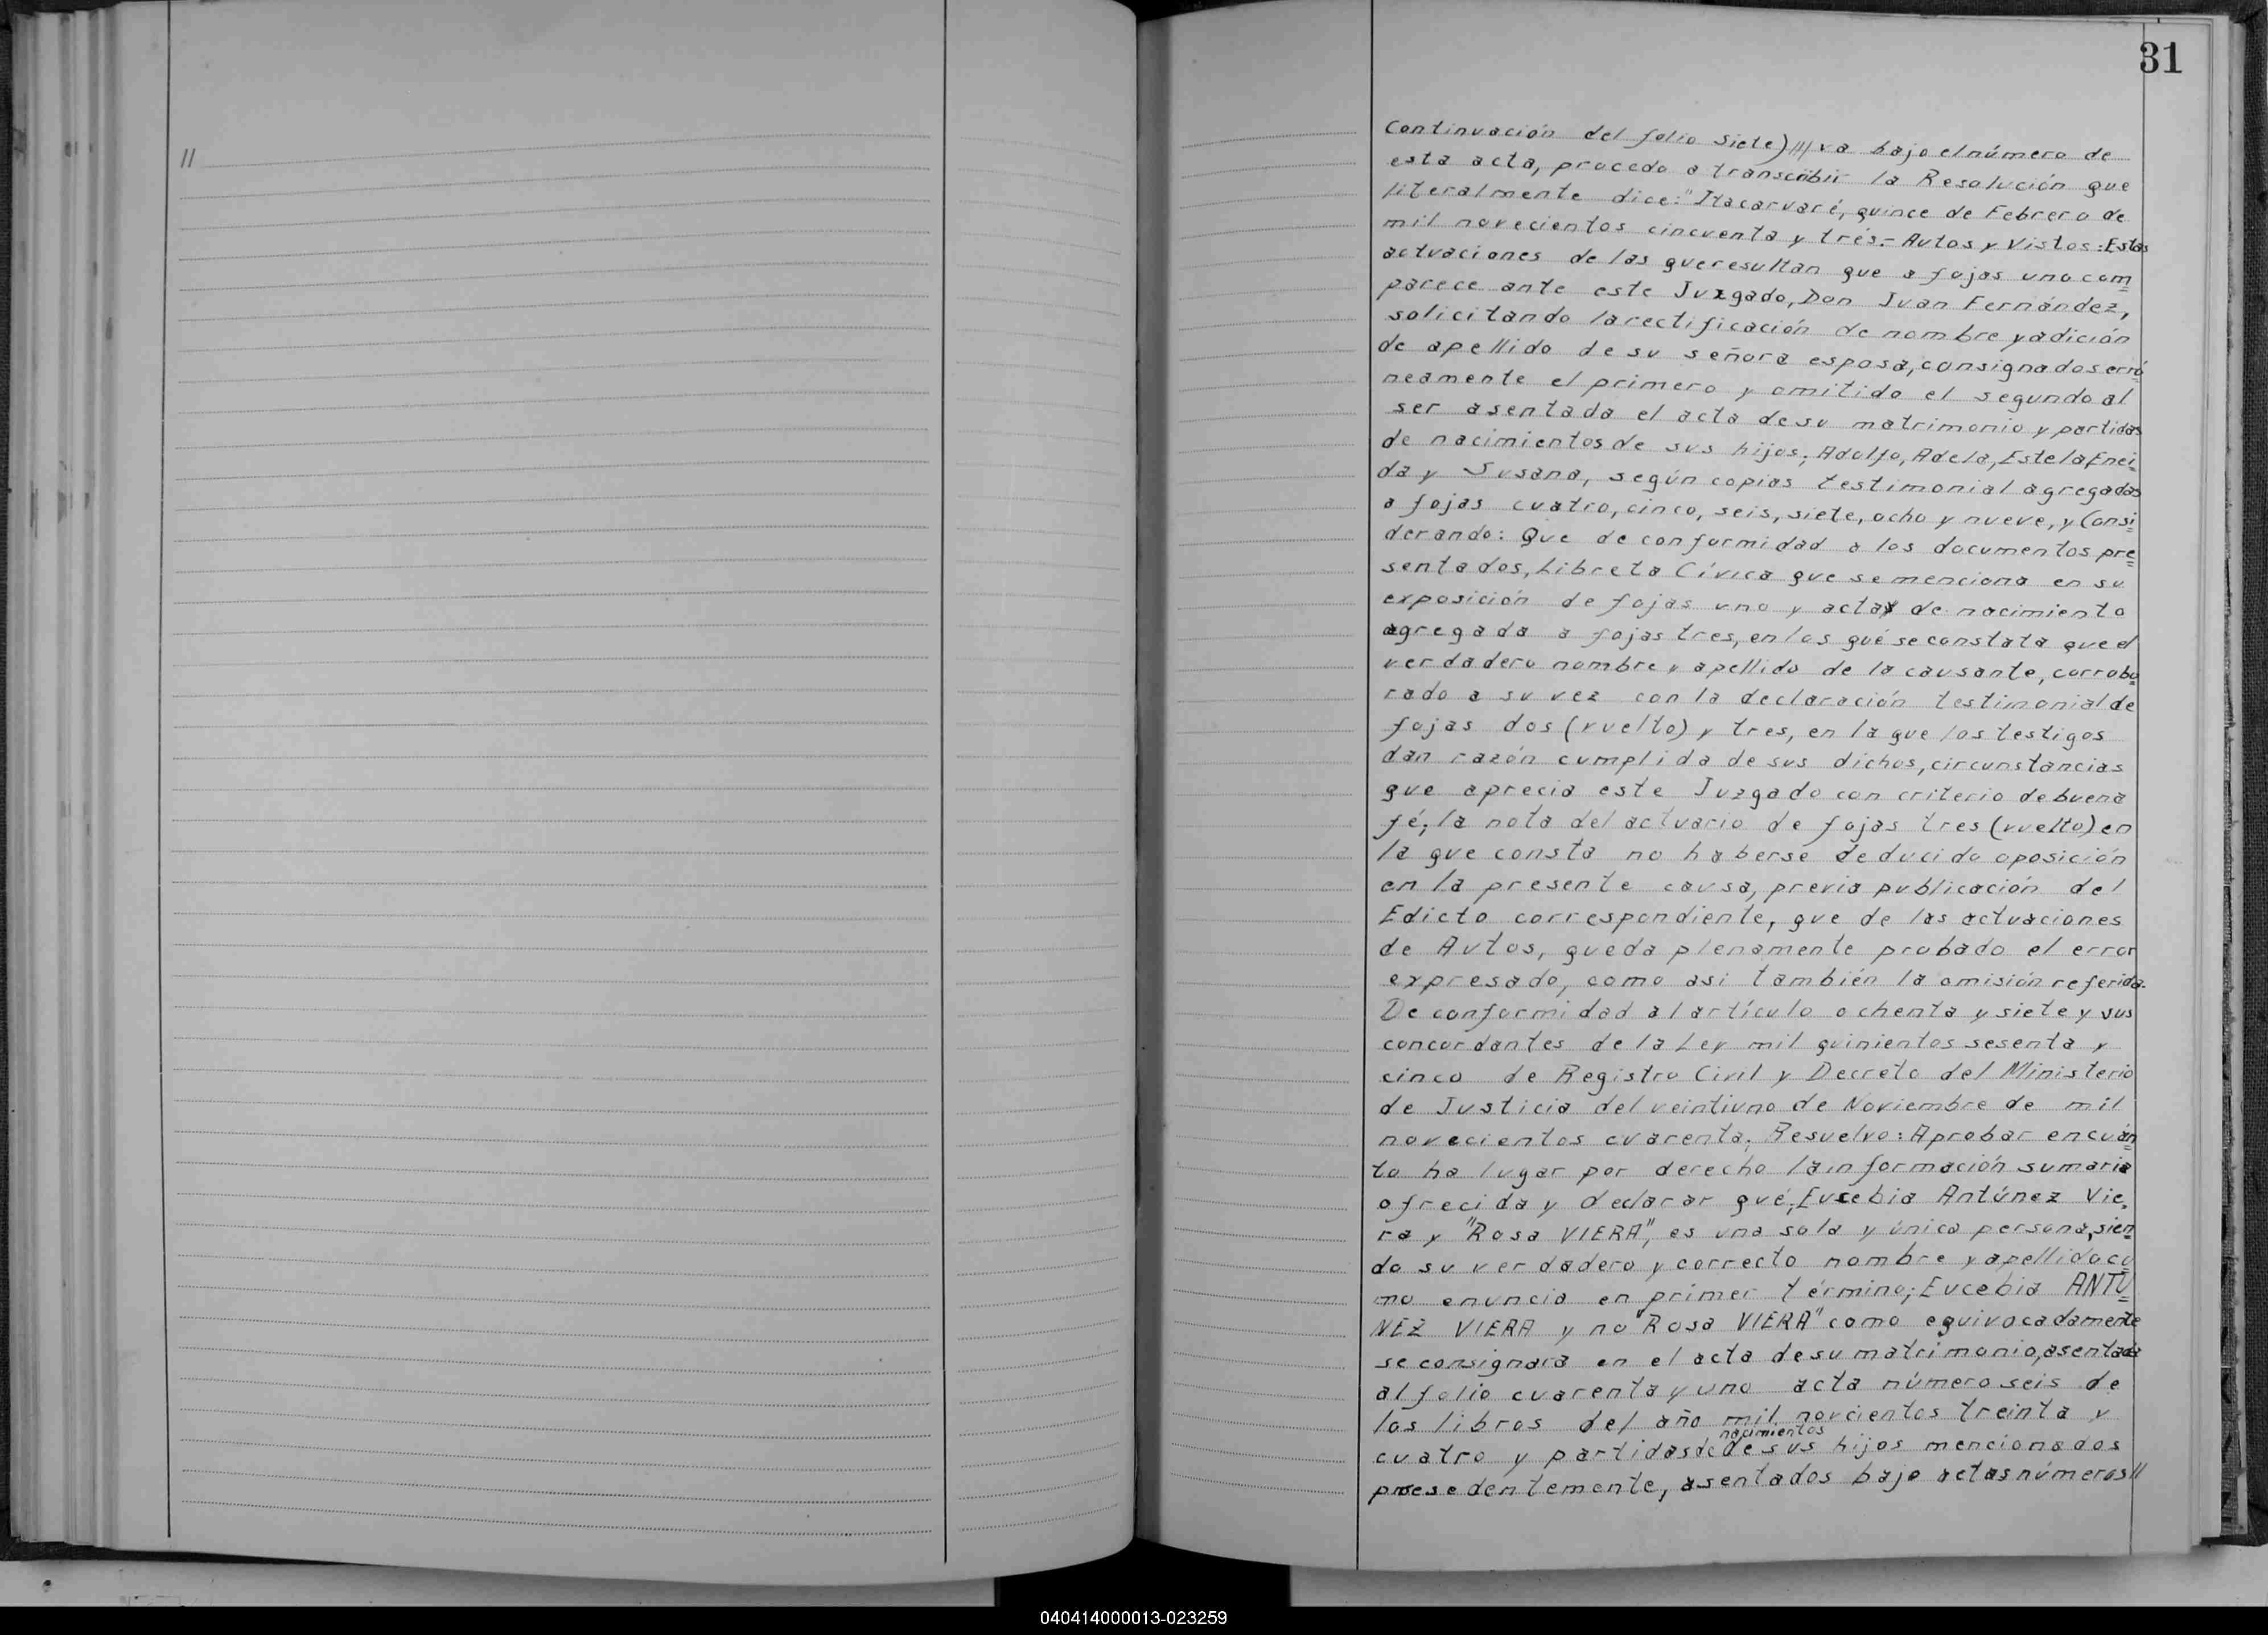 //
31
Continuación del folio siete)///va bajo el número de
esta acta, procedo a transcribir la Resolución que
literalmente dice: "Itacaruaré, quince de Febrero de
mil novecientos cincuenta y trés.- Autos y Vistos: Estas
actuaciones de las que resultan que a fojas uno com=
parece ante este Juzgado, Don Juan Fernández,
solicitando la rectificación de nombre y adición
de apellido de su señora esposa, consignados erró
neamente el primero y omitido el segundo al
ser asentada el acta de su matrimonio y partidas
de nacimientos de sus hijos; Adolfo, Adela, Estela Enei=
da y Susana, según copias testimonial agregadas
a fojas cuatro, cinco, seis, siete, ocho y nueve, y Consi=
derando: Que de conformidad a los documentos pre=
sentados, Libreta Cívica que se menciona en su
exposición de fojas uno y acta de nacimiento
agregada a fojas tres, en los qué se constata que el
verdadero nombre y apellido de la causante, corrobo=
rado a su vez con la declaración testimonial de
fojas dos (vuelto) y tres, en la que los testigos
dan razón cumplida de sus dichos, circunstancias
que aprecia este Juzgado con criterio de buena
fé; la nota del actuario de fojas tres (vuelto) en
la que consta no haberse deducido oposición
en la presente causa, previa publicación del
Edicto correspondiente, que de las actuaciones
de Autos, queda plenamente probado el error
expresado, como asi también la omisión referida.
De conformidad al artículo ochenta y siete y sus
concordantes de la Ley mil quinientos sesenta y
cinco de Registro Civil y Decreto del Ministerio
de Justicia del veintiuno de Noviembre de mil
novecientos cuarenta; Resuelvo: Aprobar en cuán=
to ha lugar por derecho la información sumaria
ofrecida y declarar qué; Eucebia Antúnez Vie=
ra y "Rosa VIERA", es una sola y única persona, sien=
do su verdadero y correcto nombre y apellido co=
mo enuncia en primer término; Eucebia ANTÚ=
NEZ VIERA y no "Rosa VIERA" como equivocadamente
se consignara en el acta de su matrimonio, asentada
al folio cuarenta y uno acta número seis de
los libros del año mil novcientos treinta y
nacimientos
cuatro y partidas de de sus hijos mencionados
presedentemente, asentados bajo actas números//
040414000013-023259